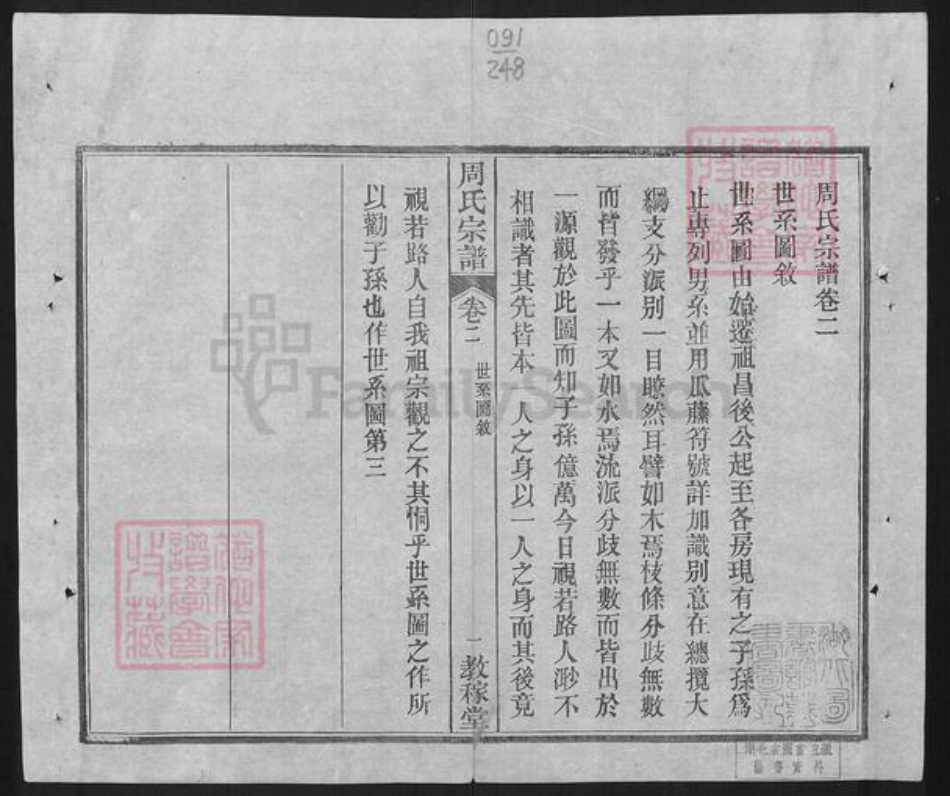 091
248
周氏宗譜卷二
世系圖敘
世系圖由始遷祖昌後公起至各房現有之子孫爲
止專列男系並用瓜藤符號詳加識別意在總攬大
綱支分派別一目瞭然耳譬如木焉枝條分歧無數
而皆發乎一本又如水焉流派分歧無數而皆出於
一源觀於此圖而知子孫億萬今日視若路人渺不
相識者其先皆本 人之身以一人之身而其後竟
周氏宗譜 卷二 世系圖敘 一 教稼堂
視若路人自我祖宗觀之不其恫乎世系圖之作所
以勸子孫也作世系圖第三
FamilySearch
譜學會
藏